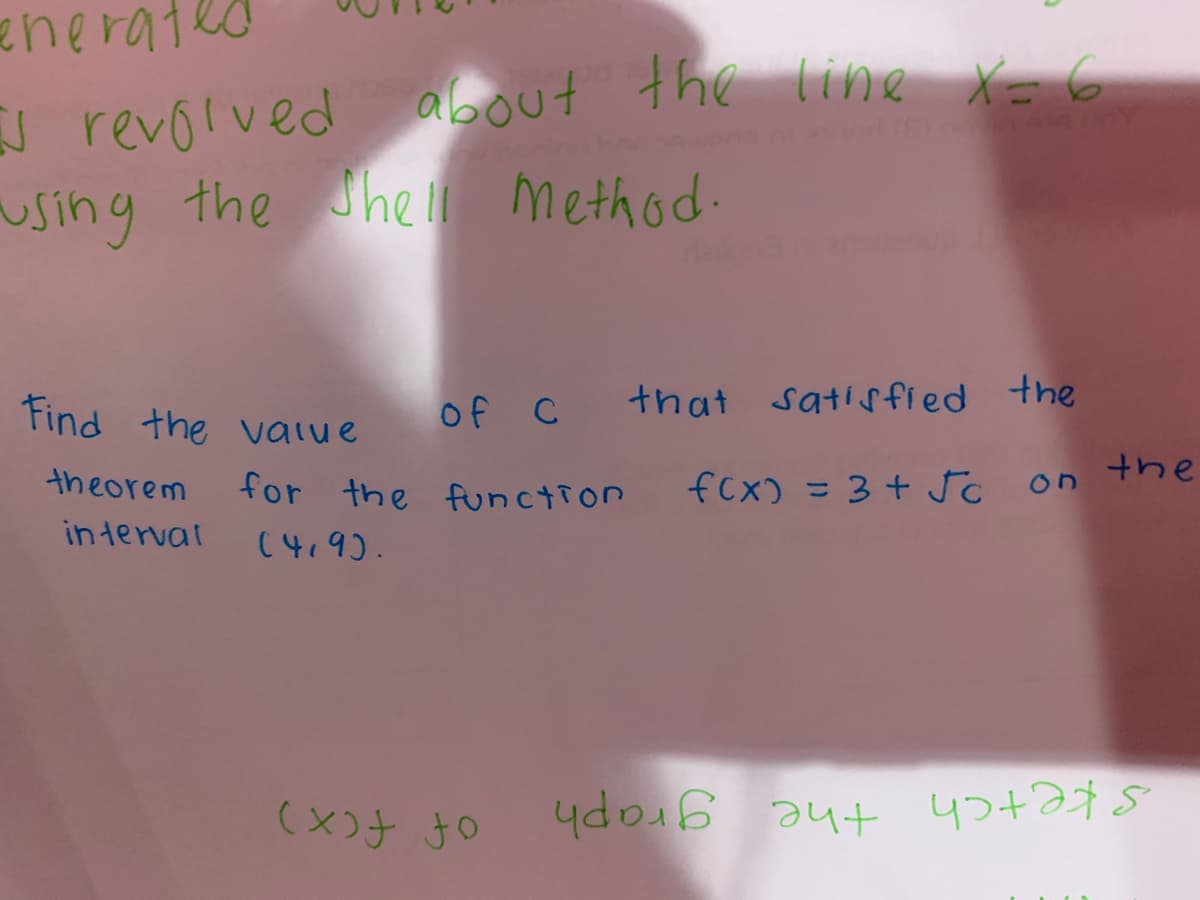 enerated
is revolved about the line x=6
using the Shell Method.
Find the value of c that satisfied the
theorem for the function f(x) = 3 + √c on the
interval (4,9).
sketch the graph of f(x)